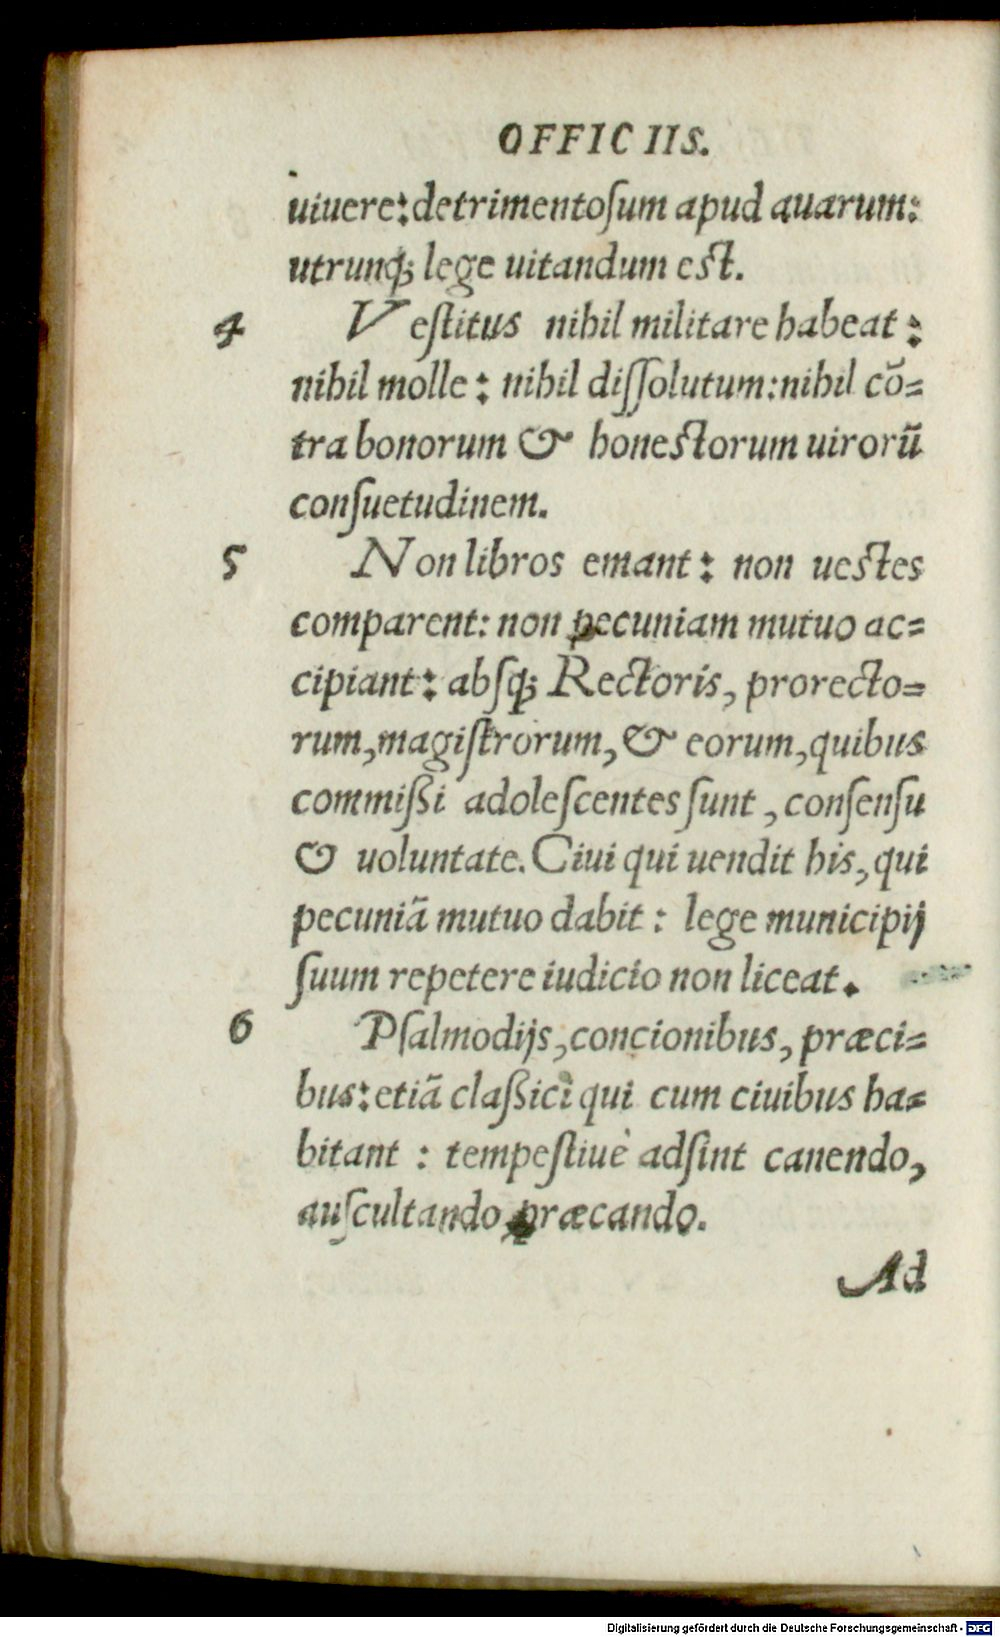 OFFICIIS.
uiuere: detrimentoſum apud auarum:
utrunq́; lege uitandum eſt.
4 Veſtitus nihil militare habeat:
nihil molle: nihil diſſolutum: nihil cō=
tra bonorum & honeſtorum uirorū
conſuetudinem.
5 Non libros emant: non ueſtes
comparent: non pecuniam mutuo ac=
cipiant: abſq́; Rectoris, prorecto=
rum, magiſtrorum, & eorum, quibus
commißi adoleſcentes ſunt, conſenſu
& uoluntate. Ciui qui uendit his, qui
pecuniā mutuo dabit: lege municipij
ſuum repetere iudicio non liceat.
6 Pſalmodijs, concionibus, præci=
bus: etiā claßici qui cum ciuibus ha=
bitant: tempeſtiuè adſint canendo,
auſcultando, præcando.
Ad
Digitalisierung gefördert durch die Deutsche Forschungsgemeinschaft - DFG